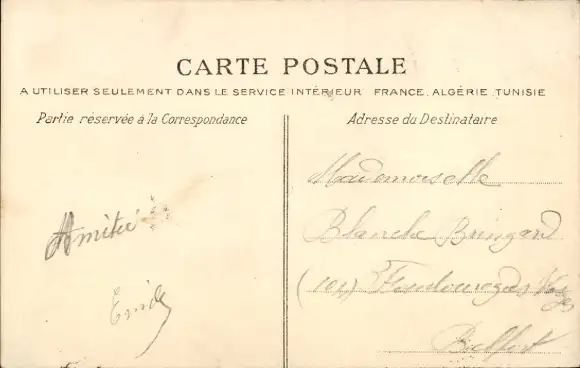 CARTE POSTALE
A UTILISER SEULEMENT DANS LE SERVICE INTÉRIEUR FRANCE. ALGÉRIE. TUNISIE
Partie réservée à la Correspondance
Adresse du Destinataire
Amitié
Emile
Mademoiselle
Blanche Bringard
(101)
Belfort